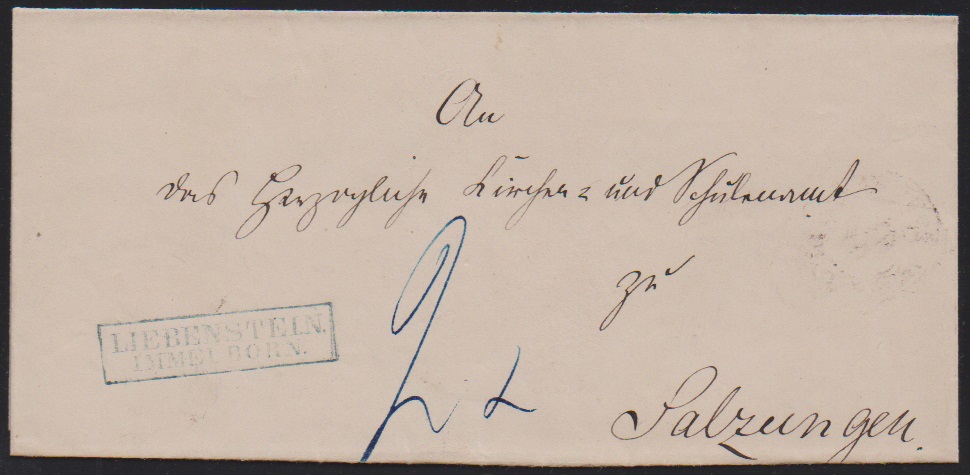 An
das Herzogliche Kirchen- und Schulenamt
zu
Salzungen.
LIEBENSTEIN.
IMMELBORN.
2